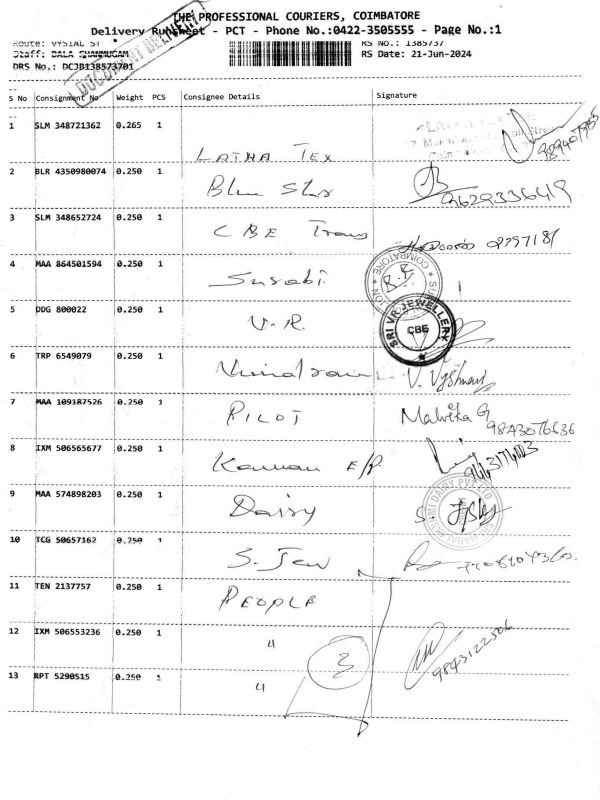 THE PROFESSIONAL COURIERS, COIMBATORE
Delivery Runsheet - PCT - Phone No.:0422-3505555 - Page No.:1
DOCUMENT DELIVERY
Route: VYSIAL ST RS No.: 1385737
Staff: BALA SHANMUGAM RS Date: 21-Jun-2024
DRS No.: DCJB138573701
S No Consignment No Weight PCS Consignee Details Signature
1 SLM 348721362 0.265 1 LATHA TEX
2 BLR 4350980074 0.250 1 Blue Star 9629336419
3 SLM 348652724 0.250 1 CBE Trans
4 MAA 864501594 0.250 1 Surabi COIMBATORE
5 DDG 800022 0.250 1 V.R. SRI VR JEWELLERY CBE
6 TRP 6549079 0.250 1 V. Vyshnavi
7 MAA 109187526 0.250 1 PILOT Malvika G 9843076636
8 IXM 506565677 0.250 1 Kannan E/P
9 MAA 574898203 0.250 1 Daisy DAIRY PVT LTD
10 TCG 50657162 0.250 1 S. Jew
11 TEN 2137757 0.250 1 PEOPLE
12 IXM 506553236 0.250 1 " 3 9843122506
13 RPT 5290515 0.250 1 "